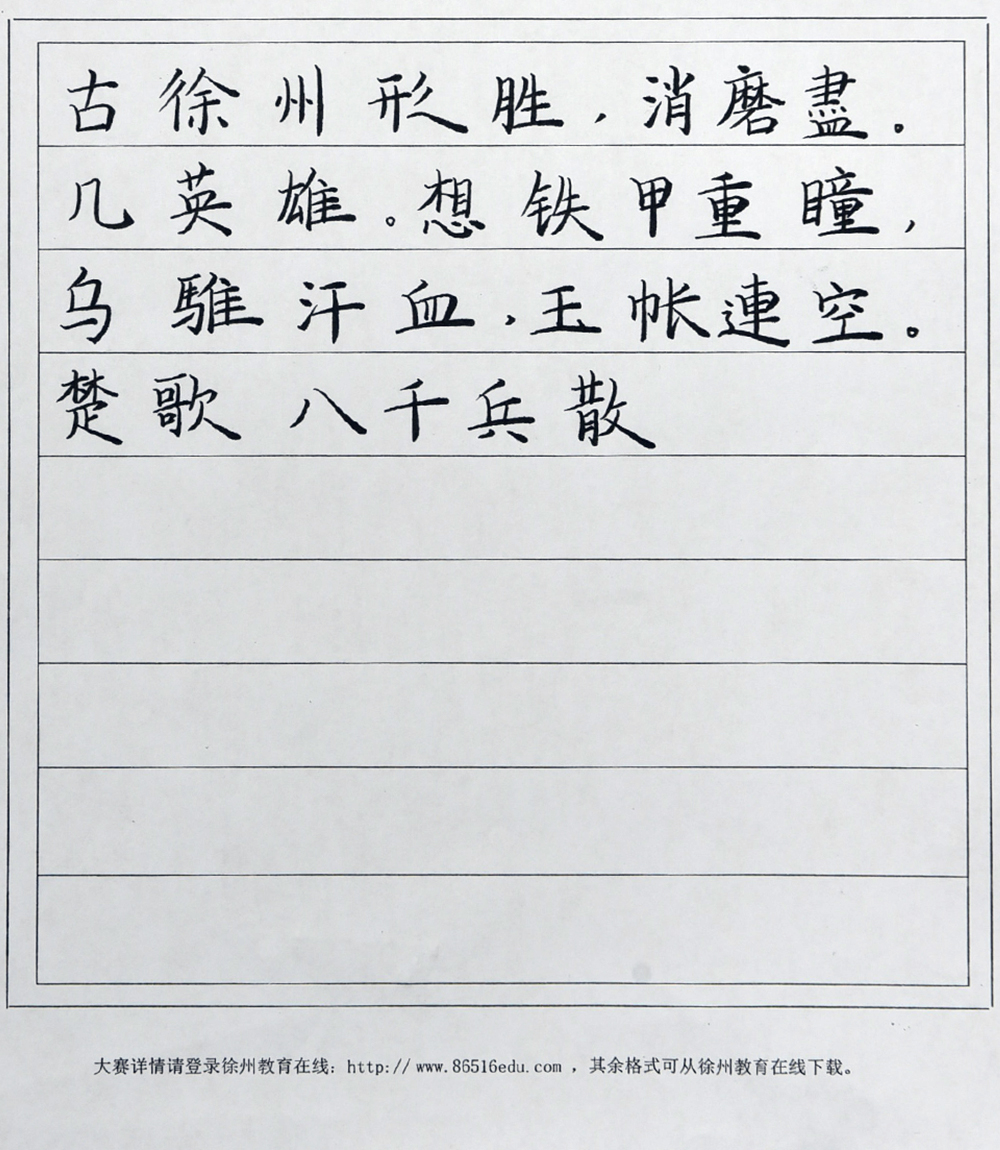 古徐州形胜，消磨盡。
几英雄。想铁甲重瞳，
乌騅汗血，玉帐連空。
楚歌八千兵散
大赛详情请登录徐州教育在线：http://www.86516edu.com，其余格式可从徐州教育在线下载。